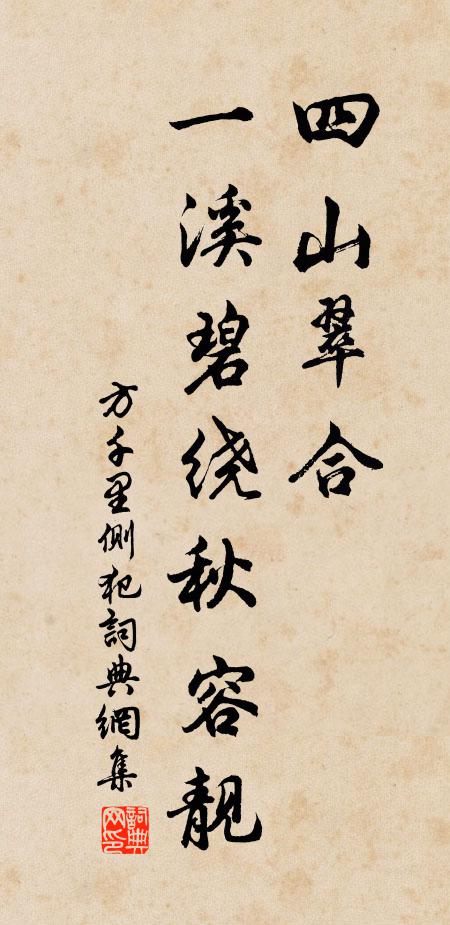 四山翠合
一溪碧绕秋容靓
方千里側犯詞典網集
詞典网印